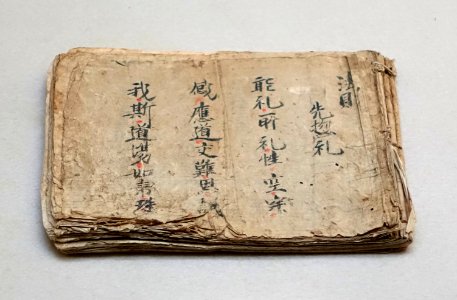 先礼
能礼所礼性空寂
感應道交難思議
我斯道場如帝珠